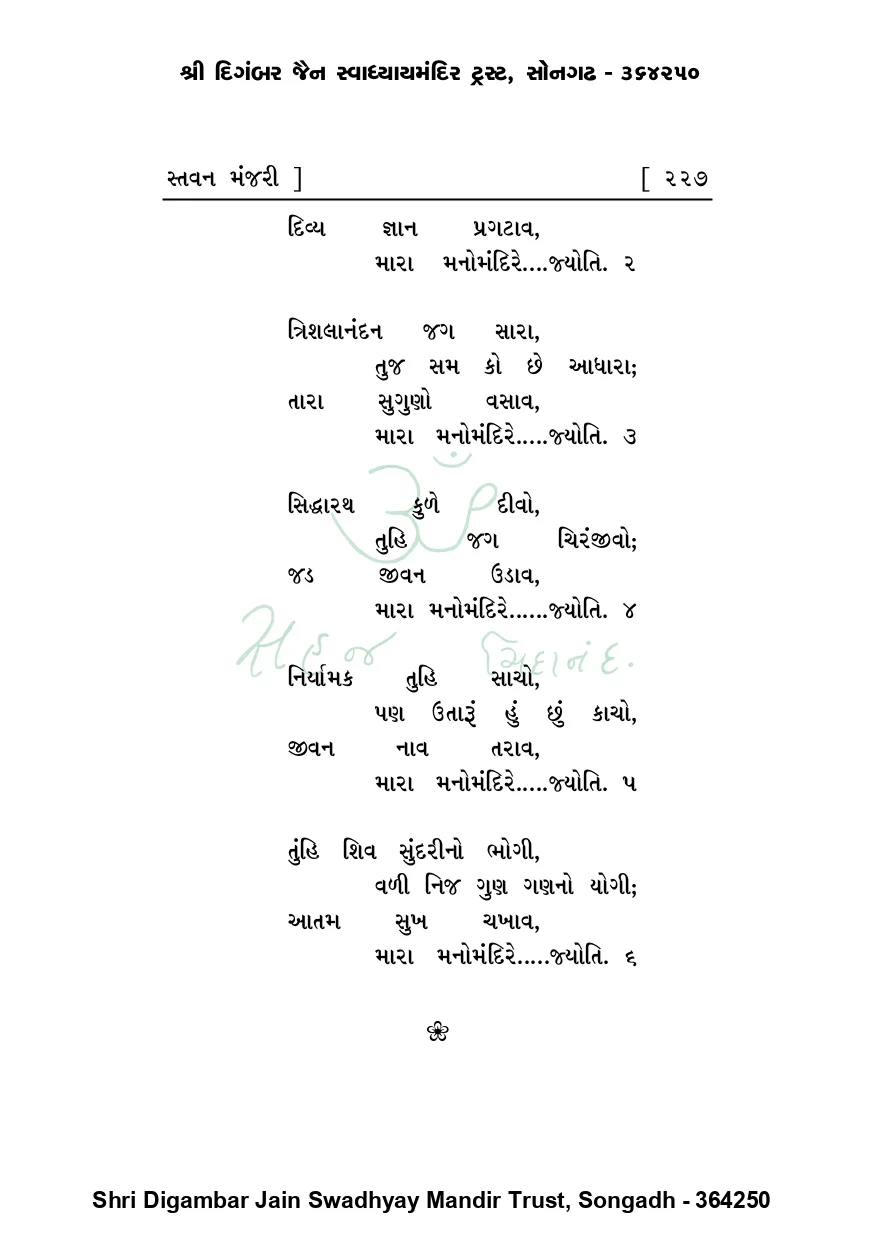 શ્રી દિગંબર જૈન સ્વાધ્યાયમંદિર ટ્રસ્ટ, સોનગઢ - ૩૬૪૨૫૦
સ્તવન મંજરી ] [ ૨૨૭
દિવ્ય જ્ઞાન પ્રગટાવ,
મારા મનોમંદિરે....જ્યોતિ. ૨
ત્રિશલાનંદન જગ સારા,
તુજ સમ કો છે આધારા;
તારા સુગુણો વસાવ,
મારા મનોમંદિરે.....જ્યોતિ. ૩
સિદ્ધારથ કુળે દીવો,
તુહિ જગ ચિરંજીવો;
જડ જીવન ઉડાવ,
મારા મનોમંદિરે......જ્યોતિ. ૪
સહજ ચિદાનંદ.
નિર્યામક તુહિ સાચો,
પણ ઉતારૂં હું છું કાચો,
જીવન નાવ તરાવ,
મારા મનોમંદિરે.....જ્યોતિ. ૫
તુંહિ શિવ સુંદરીનો ભોગી,
વળી નિજ ગુણ ગણનો યોગી;
આતમ સુખ ચખાવ,
મારા મનોમંદિરે.....જ્યોતિ. ૬
Shri Digambar Jain Swadhyay Mandir Trust, Songadh - 364250